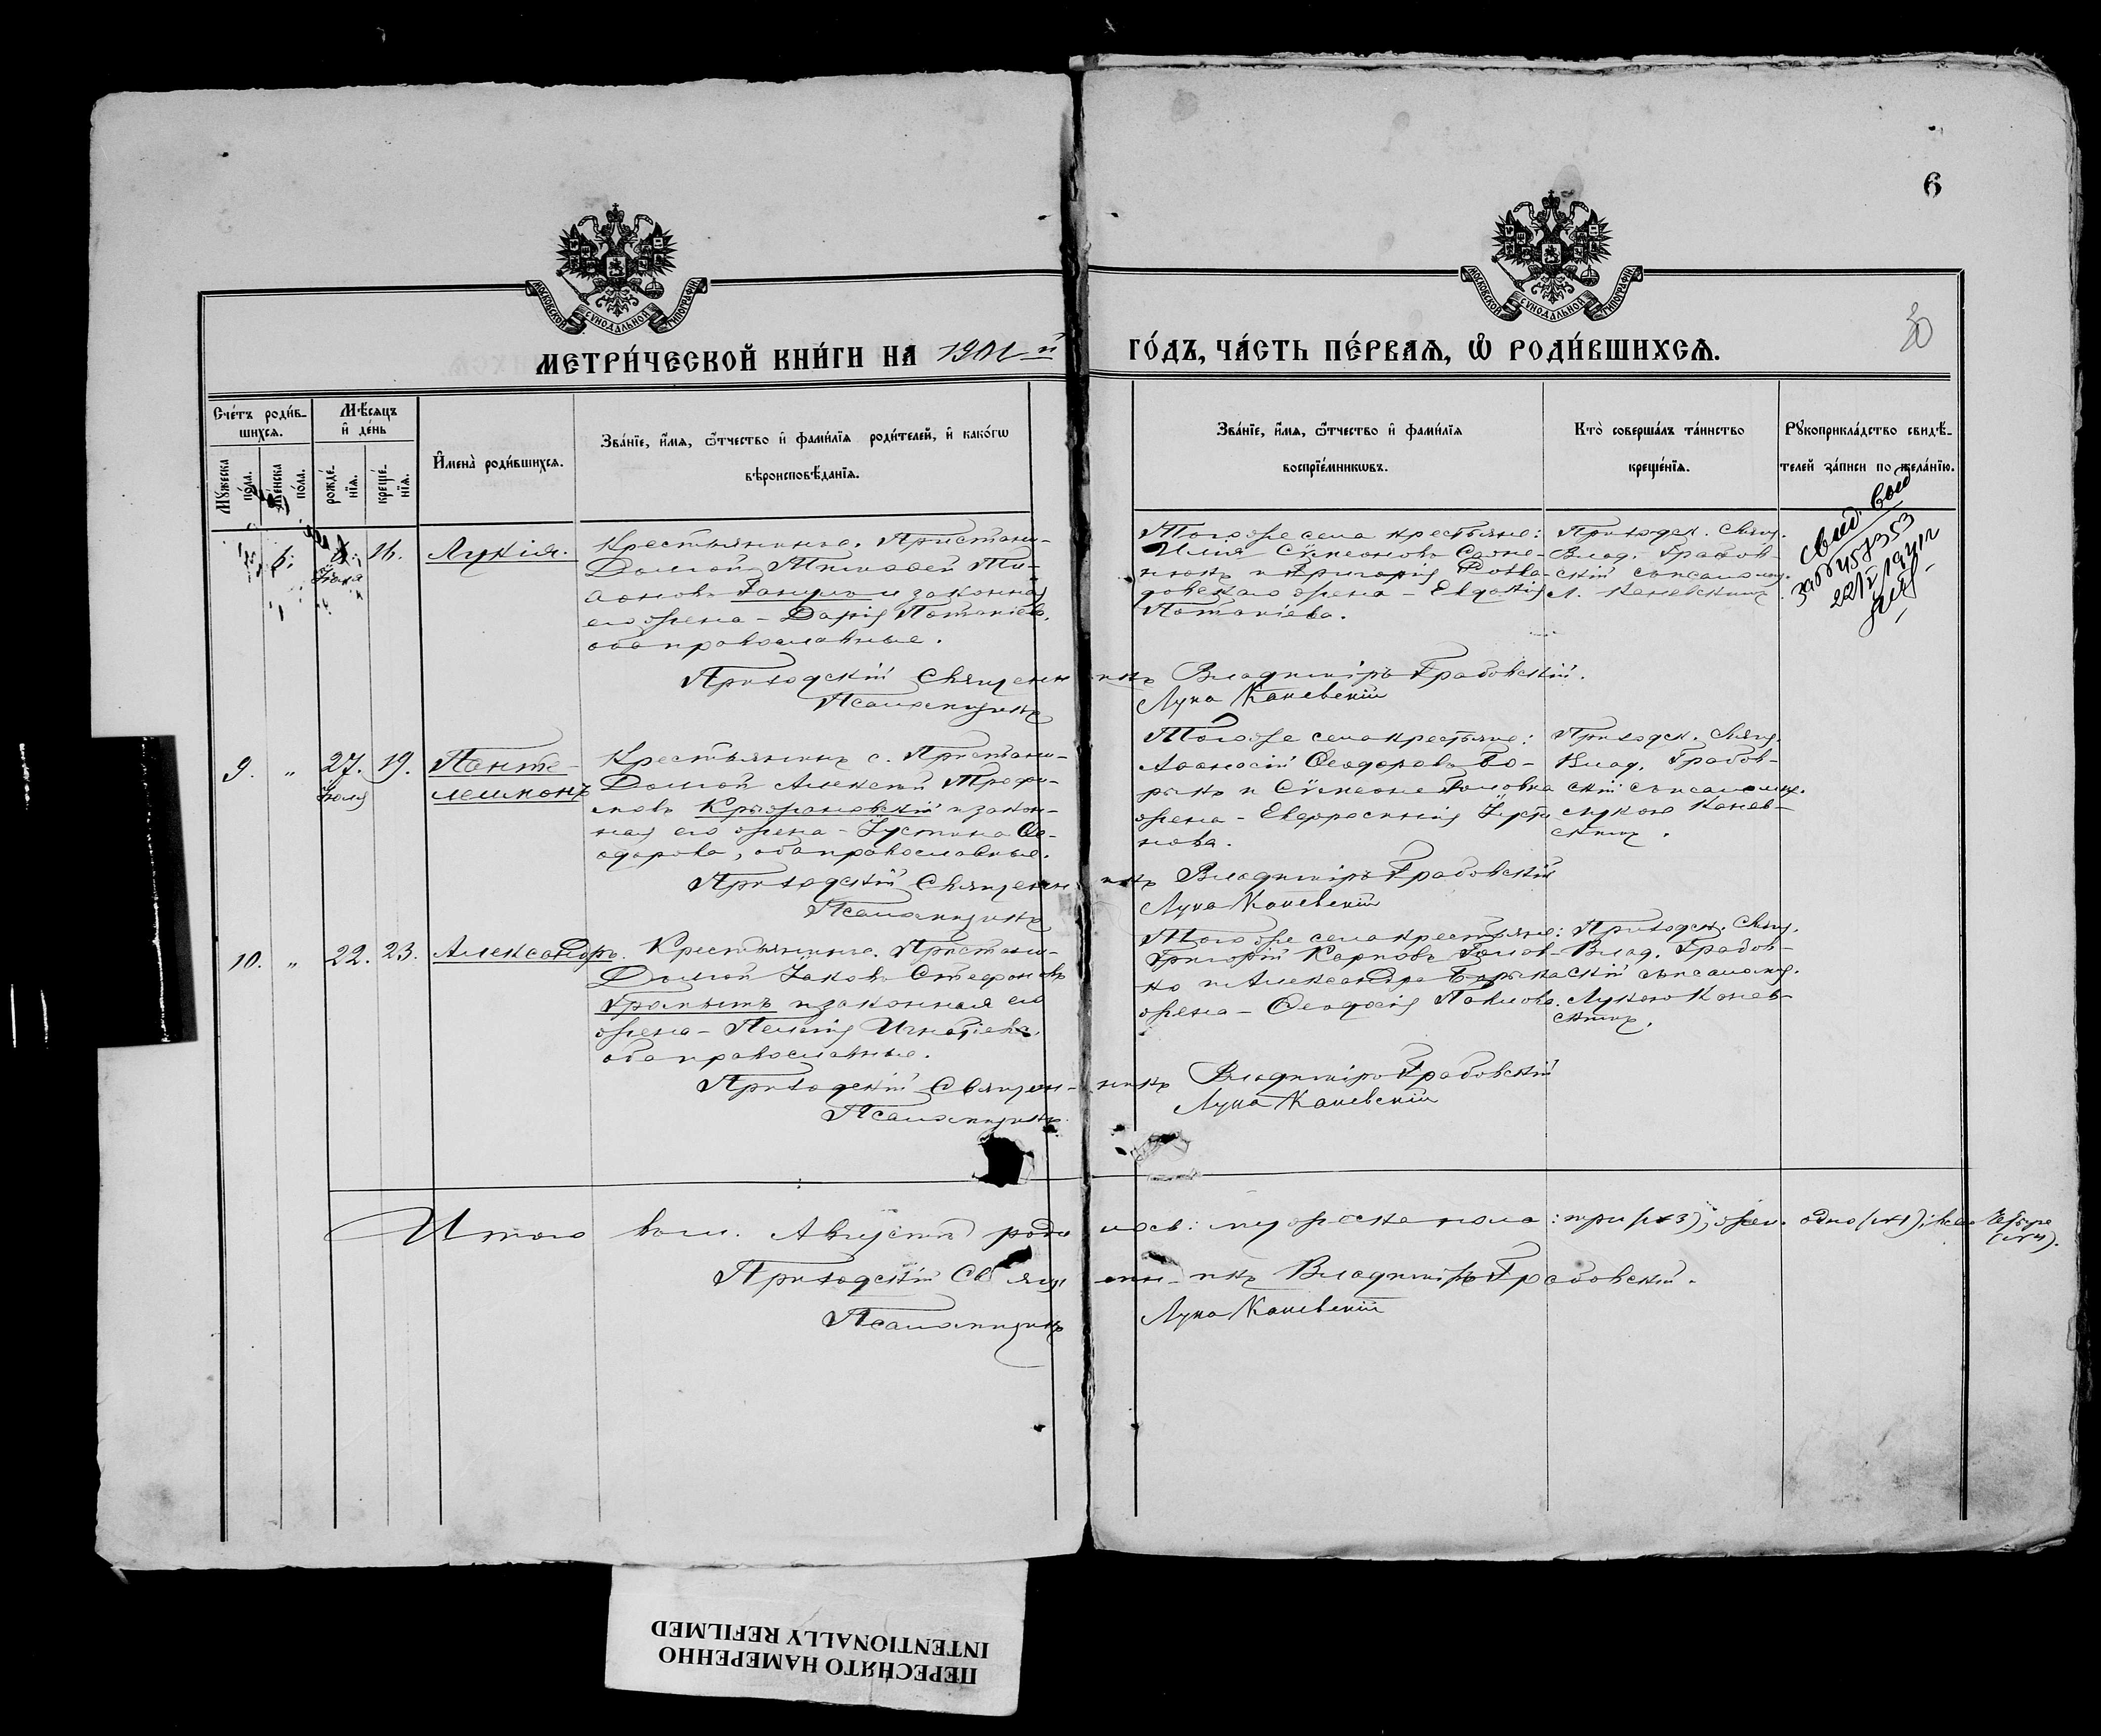 6
МОСКОВСКОЙ СѴНОДАЛЬНОЙ ТИПОГРАФІИ
МОСКОВСКОЙ СѴНОДАЛЬНОЙ ТИПОГРАФІИ
МЕТРИ́ЧЕСКОЙ КНИ́ГИ НА 1901 й
ГО́ДЪ, ЧА́СТЬ ПЕ́РВАЯ, Ѡ РОДИ́ВШИХСЯ.
Сче́тъ роди́в-
шихся.
Мѣ́сяцъ
и де́нь
Мꙋжеска по́ла.
Женска по́ла.
рожде́-
нїя.
креще́-
нїя.
Имена̀ роди́вшихся.
Зва́нїе, и́мя, ѻ́тчество и фами́лїя роди́телей, и како́гѡ
вѣроисповѣ́данїя.
Зва́нїе, и́мя, ѻ́тчество и фами́лїя
воспрїе́мникѡвъ.
Кто̀ соверша́лъ та́инство
креще́нїя.
Рꙋкоприкла́дство свидѣ́-
телей за́писи по жела́нїю.
6. 16. Лукія.
Крестьянинъ с. Пристани-
Долгой Тимофей Ти-
законная
его жена - Дарія Потапіева,
оба православные.
Тогоже села крестьяне:
Илія Сѵмеоновъ
жена - Евдокія
Потапіева.
Приходск. Свящ.
Влад. Грабов-
скій съ псаломщ.
Л. Каневскимъ
Свид. выд
22/V 1941 г
Приходскій Священникъ Владиміръ Грабовскій.
Псаломщикъ Лука Каневскій
9. " 27. 19. Панте-
Іюля леимонъ
Крестьянинъ с. Пристани-
Долгой Алексѣй Трофи-
мовъ Крыжановскій и закон-
ная его жена - Іустина Ѳе-
одорова, оба православные.
Тогоже села крестьяне:
Аѳанасій Ѳеодоровъ Бо-
рыкъ и Сѵмеона Головка
жена - Евфросинія Іусти
нова.
Приходск. Свящ.
Влад. Грабов-
скій съ псаломщ.
Лукою Канев-
скимъ.
Приходскій Священникъ Владиміръ Грабовскій
Псаломщикъ Лука Каневскій
10. " 22. 23. Александръ.
Крестьянинъ с. Пристани-
Долгой Іаковъ Стефановъ
и законная его
жена - Пелагія Игнатіева,
оба православные.
Тогоже села крестьяне:
Григорій Карповъ Голов-
ко и Александра Борыка
жена - Ѳеодосія Павлова.
Приходск. Свящ.
Влад. Грабов-
скій съ псаломщ.
Лукою Канев-
скимъ.
Приходскій Священникъ Владиміръ Грабовскій
Псаломщикъ Лука Каневскій
Итого въ м. Августѣ родилось: мужеска пола: три (№3), жен. одно (№1), всего четыре
(№4).
Приходскій Священникъ Владиміръ Грабовскій.
Псаломщикъ Лука Каневскій
ПЕРЕСНЯТО НАМЕРЕННО
INTENTIONALLY REFILMED